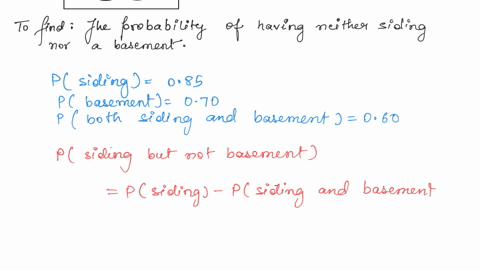 To find: The probability of having neither siding
nor a basement.
P( siding) = 0.85
P( basement) = 0.70
P( both siding and basement) = 0.60
P( siding but not basement)
= P( siding) - P( siding and basement